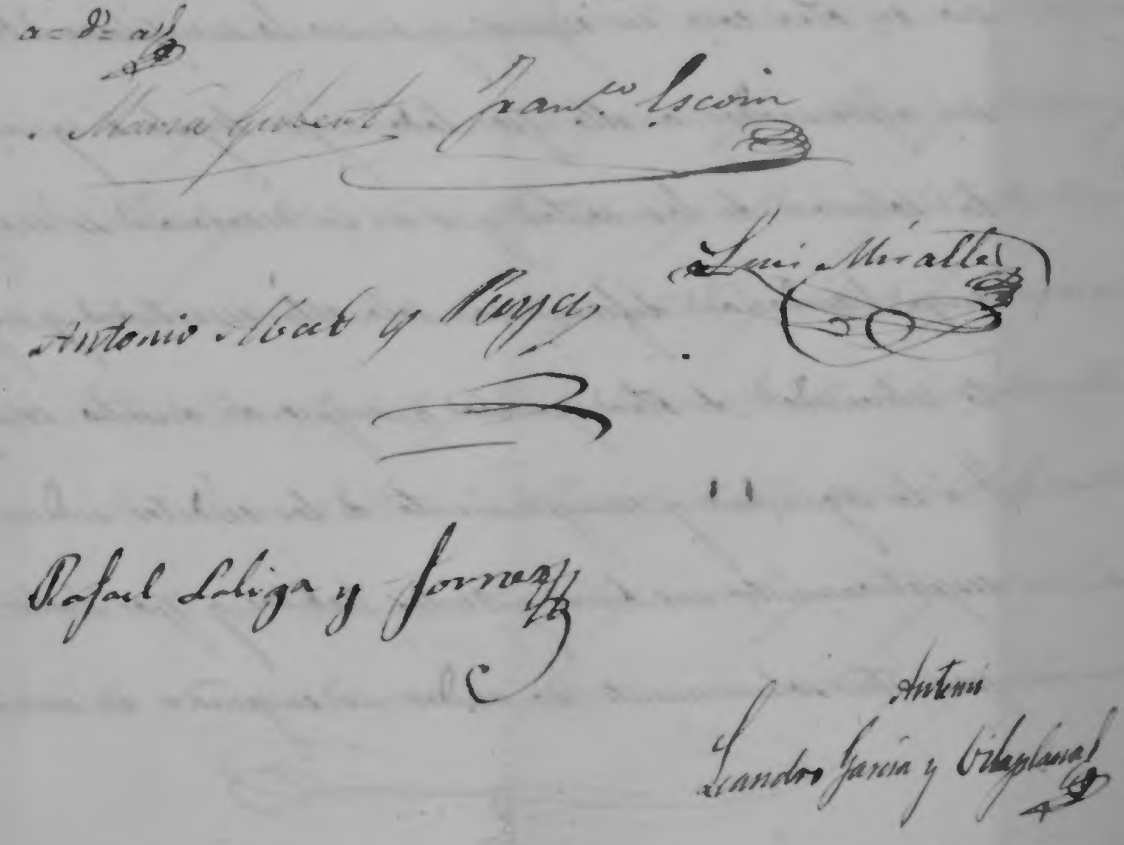 a = d = a
María Gisbert
Fran.co Escoin
Luis Miralles
Antonio Abad y Paya
Rafael Laliga y Jornet
Antemi
Leandro García y Vilaplana